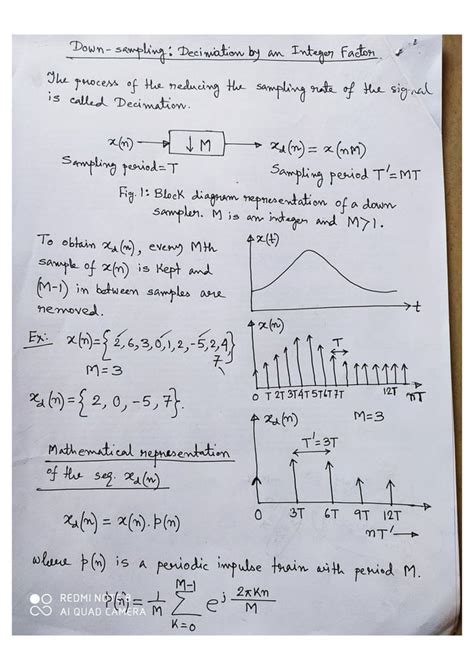 Down-sampling: Decimation by an Integer Factor.
The process of the reducing the sampling rate of the signal
is called Decimation.
x(n) → ↓ M → x_d(n) = x(nM)
Sampling period = T
Sampling period T' = MT
Fig. 1: Block diagram representation of a down
sampler. M is an integer and M>1.
To obtain x_d(n), every Mth
sample of x(n) is kept and
(M-1) in between samples are
removed.
x(t)
t
Ex: x(n) = {2, 6, 3, 0, 1, 2, -5, 2, 4,
7}
M = 3
x_d(n) = {2, 0, -5, 7}.
x(n)
T
0 T 2T 3T 4T 5T 6T 7T 12T nT
x_d(n)
M=3
T' = 3T
0 3T 6T 9T 12T
nT'
Mathematical representation
of the seq. x_d(n)
x_d(n) = x(n). p(n)
where p(n) is a periodic impulse train with period M.
p(n) = 1/M ∑_{K=0}^{M-1} e^{j 2πKn/M}
REDMI NOTE 8
AI QUAD CAMERA